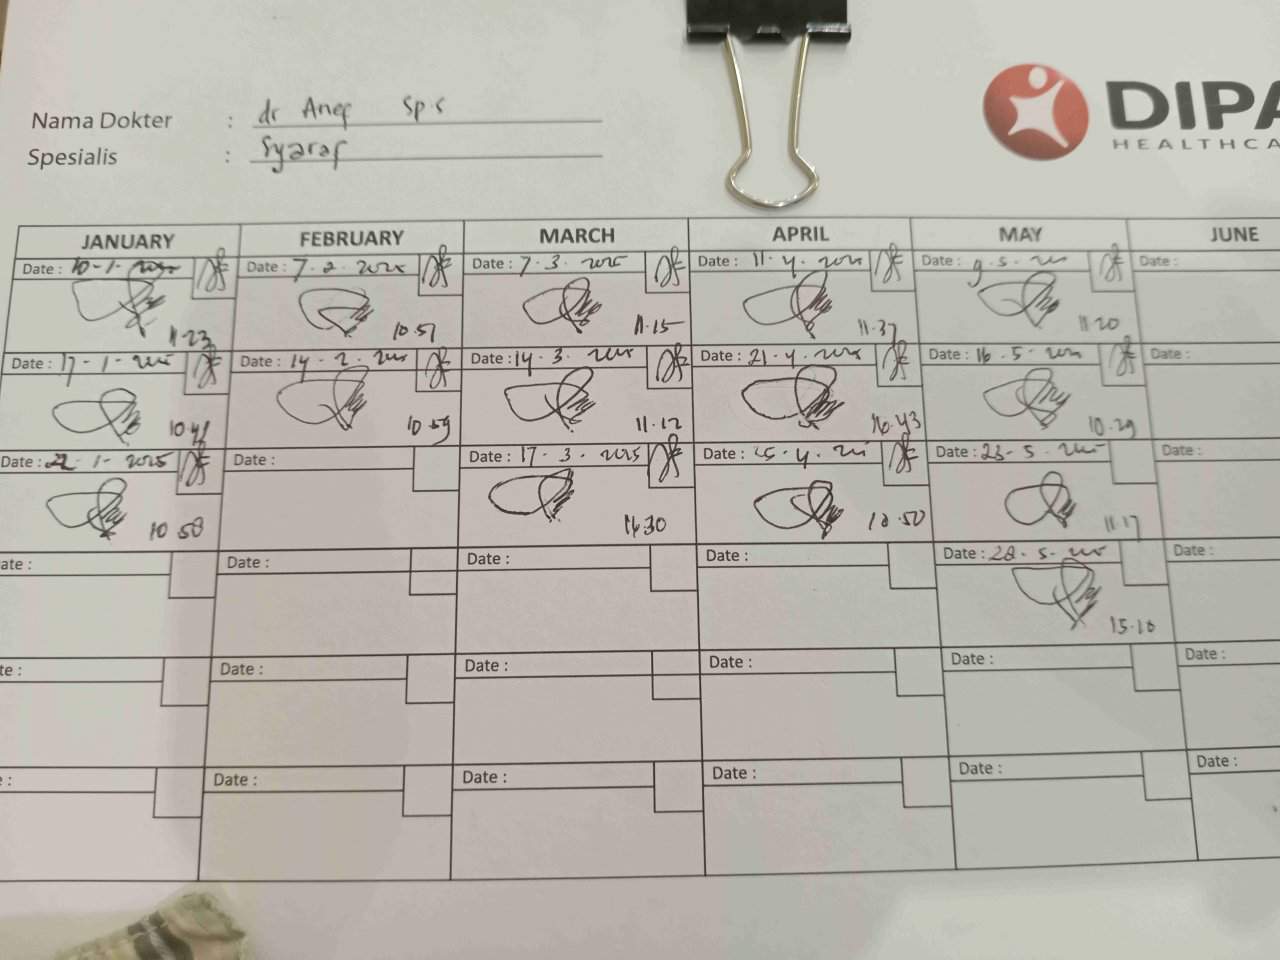 Nama Dokter : dr Anef Sp.S
Spesialis : Syaraf
DIPA
HEALTHCA
JANUARY FEBRUARY MARCH APRIL MAY JUNE
Date : 10-1-2025 Date : 7-2-2025 Date : 7-3-2025 Date : 11-4-2025 Date : 9-5-2025 Date :
11.23 10.51 11.15 11.37 11.20
Date : 17-1-2025 Date : 14-2-2025 Date : 14-3-2025 Date : 21-4-2025 Date : 16-5-2025 Date :
10.59 11.12 16.43 10.29
Date : 22-1-2025 Date : Date : 17-3-2025 Date : 25-4-2025 Date : 23-5-2025 Date :
10.58 16.30 10.50 11.17
ate : Date : Date : Date : Date : 28-5-2025 Date :
15.10
te : Date : Date : Date : Date : Date :
e : Date : Date : Date : Date : Date :